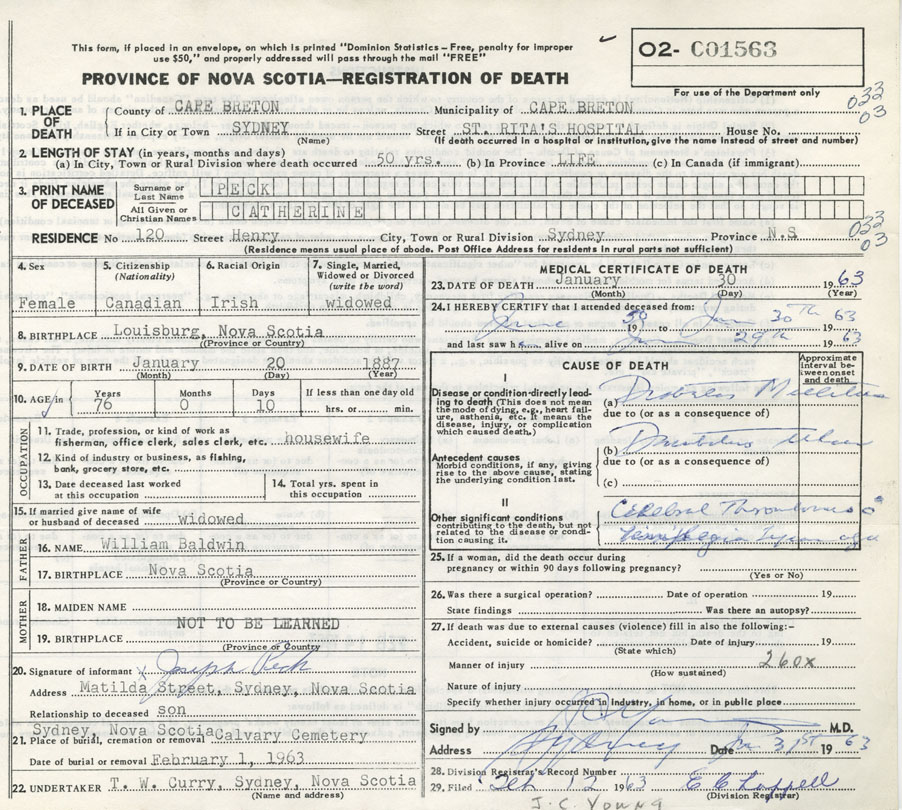 This form, if placed in an envelope, on which is printed "Dominion Statistics – Free, penalty for improper
use $50," and properly addressed will pass through the mail "FREE"
O2- C01563
For use of the Department only
PROVINCE OF NOVA SCOTIA—REGISTRATION OF DEATH
033
03
1. PLACE OF DEATH
County of CAPE BRETON Municipality of CAPE BRETON
If in City or Town SYDNEY Street ST. RITA'S HOSPITAL House No.
(Name) (If death occurred in a hospital or institution, give the name instead of street and number)
2. LENGTH OF STAY (in years, months and days)
(a) In City, Town or Rural Division where death occurred 50 yrs. (b) In Province LIFE (c) In Canada (if immigrant)
3. PRINT NAME OF DECEASED
Surname or Last Name PECK
All Given or Christian Names CATHERINE
033
03
RESIDENCE No 120 Street Henry City, Town or Rural Division Sydney Province N.S
(Residence means usual place of abode. Post Office Address for residents in rural parts not sufficient)
4. Sex
Female
5. Citizenship (Nationality)
Canadian
6. Racial Origin
Irish
7. Single, Married, Widowed or Divorced (write the word)
widowed
8. BIRTHPLACE Louisburg, Nova Scotia
(Province or Country)
9. DATE OF BIRTH January 20 1887
(Month) (Day) (Year)
10. AGE in
Years 76
Months 0
Days 10
If less than one day old
hrs. or min.
OCCUPATION
11. Trade, profession, or kind of work as
fisherman, office clerk, sales clerk, etc. housewife
12. Kind of industry or business, as fishing,
bank, grocery store, etc.
13. Date deceased last worked
at this occupation
14. Total yrs. spent in
this occupation
15. If married give name of wife
or husband of deceased widowed
FATHER
16. NAME William Baldwin
17. BIRTHPLACE Nova Scotia
(Province or Country)
MOTHER
18. MAIDEN NAME
NOT TO BE LEARNED
19. BIRTHPLACE
(Province or Country)
20. Signature of informant x Joseph Peck
Address Matilda Street, Sydney, Nova Scotia
Relationship to deceased son
Sydney, Nova Scotia
21. Place of burial, cremation or removal Calvary Cemetery
Date of burial or removal February 1, 1963
22. UNDERTAKER T. W. Curry, Sydney, Nova Scotia
(Name and address)
MEDICAL CERTIFICATE OF DEATH
23. DATE OF DEATH January 30 1963
(Month) (Day) (Year)
24. I HEREBY CERTIFY that I attended deceased from:
June 19 to Jan 30th 1963
and last saw her alive on Jan 29th 1963
CAUSE OF DEATH
Approximate interval between onset and death
I
Disease or condition directly leading to death (This does not mean
the mode of dying, e.g., heart failure, asthenia, etc. It means the
disease, injury, or complication
which caused death.)
(a) Diabetes Mellitus
due to (or as a consequence of)
Antecedent causes
Morbid conditions, if any, giving
rise to the above cause, stating
the underlying condition last.
(b)
due to (or as a consequence of)
(c)
II
Other significant conditions
contributing to the death, but not
related to the disease or condition causing it.
Cerebral Thrombosis
Hemiplegia
25. If a woman, did the death occur during
pregnancy or within 90 days following pregnancy?
(Yes or No)
26. Was there a surgical operation? Date of operation 19
State findings Was there an autopsy?
27. If death was due to external causes (violence) fill in also the following:-
Accident, suicide or homicide? Date of injury 19
(State which)
Manner of injury 260x
(How sustained)
Nature of injury
Specify whether injury occurred in industry, in home, or in public place
Signed by M.D.
Address Sydney Date Jan 31st 1963
28. Division Registrar's Record Number
29. Filed Feb 12 1963
(Division Registrar)
J.C. YOUNG